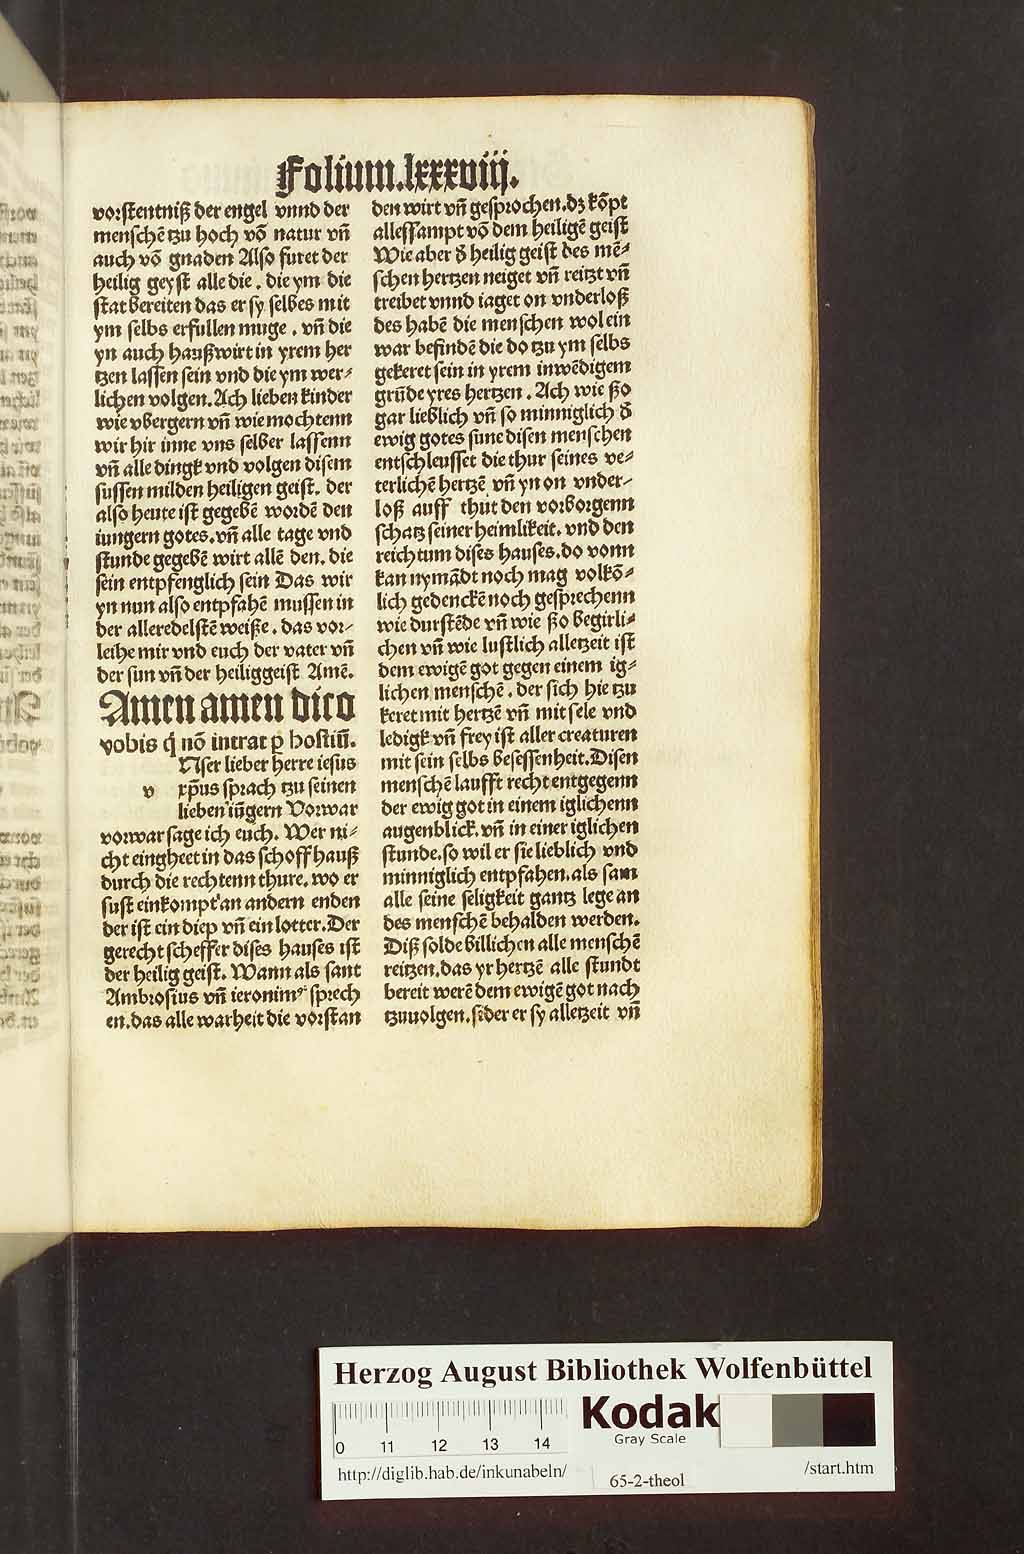 Folium.lxxxviij.
vorstentniß der engel vnnd der
menschē tzu hoch vō natur vñ
auch vō gnaden Also furet der
heilig geyst alle die . die ym die
stat bereiten das er sy selbes mit
ym selbs erfullen muge . vñ die
yn auch haußwirt in yrem her
tzen lassen sein vnd die ym wer⸗
lichen volgen. Ach lieben kinder
wie vbergern vñ wie mochtenn
wir hir inne vns selber lassenn
vñ alle dingk vnd volgen disem
sussen milden heiligen geist. der
also heute ist gegebē wordē den
iungern gotes. vñ alle tage vnd
stunde gegebē wirt allē den. die
sein entpfenglich sein Das wir
yn nun also entpfahē mussen in
der alleredelstē weiße . das vor⸗
leihe mir vnd euch der vater vñ
der sun vñ der heiliggeist Amē.
Amen amen dico
vobis q̄ nō intrat p̱ hostiū.
Nser lieber herre iesus
v xp̄us sprach tzu seinen
lieben iūgern Vorwar
vorwar sage ich euch. Wer ni⸗
cht eingheet in das schoff hauß
durch die rechtenn thure. wo er
sust einkompt an andern enden
der ist ein diep vñ ein lotter. Der
gerecht scheffer dises hauses ist
der heilig geist. Wann als sant
Ambrosius vñ ieronimꝰ sprech
en. das alle warheit die vorstan
den wirt vñ gesprochen. dz kōpt
allessampt vō dem heiligē geist
Wie aber d̓ heilig geist des mē⸗
schen hertzen neiget vñ reitzt vñ
treibet vnnd iaget on vnderloß
des habē die menschen wol ein
war befindē die do tzu ym selbs
gekeret sein in yrem inwēdigem
grūde yres hertzen . Ach wie ßo
gar lieblich vñ so minniglich d̓
ewig gotes sune disen menschen
entschleusset die thur seines ve⸗
terlichē hertzē vñ yn on vnder⸗
loß auff thut den vorborgenn
schatz seiner heimlikeit. vnd den
reichtum dises hauses. do vonn
kan nymādt noch mag volkō⸗
lich gedenckē noch gesprechenn
wie durstēde vñ wie ßo begirli⸗
chen vñ wie lustlich alletzeit ist
dem ewigē got gegen einem ig⸗
lichen menschē . der sich hie tzu
keret mit hertzē vñ mit sele vnd
ledigk vñ frey ist aller creaturen
mit sein selbs besessenheit. Disen
menschē laufft recht entgegenn
der ewig got in einem iglichenn
augenblick. vñ in einer iglichen
stunde. so wil er sie lieblich vnd
minniglich entpfahen. als sam
alle seine seligkeit gantz lege an
des menschē behalden werden.
Diß solde billichen alle menschē
reitzen. das yr hertzē alle stundt
bereit werē dem ewigē got nach
tzuuolgen. sider er sy alletzeit vñ
Herzog August Bibliothek Wolfenbüttel
Kodak
Gray Scale
0 11 12 13 14
http://diglib.hab.de/inkunabeln/
65-2-theol
/start.htm